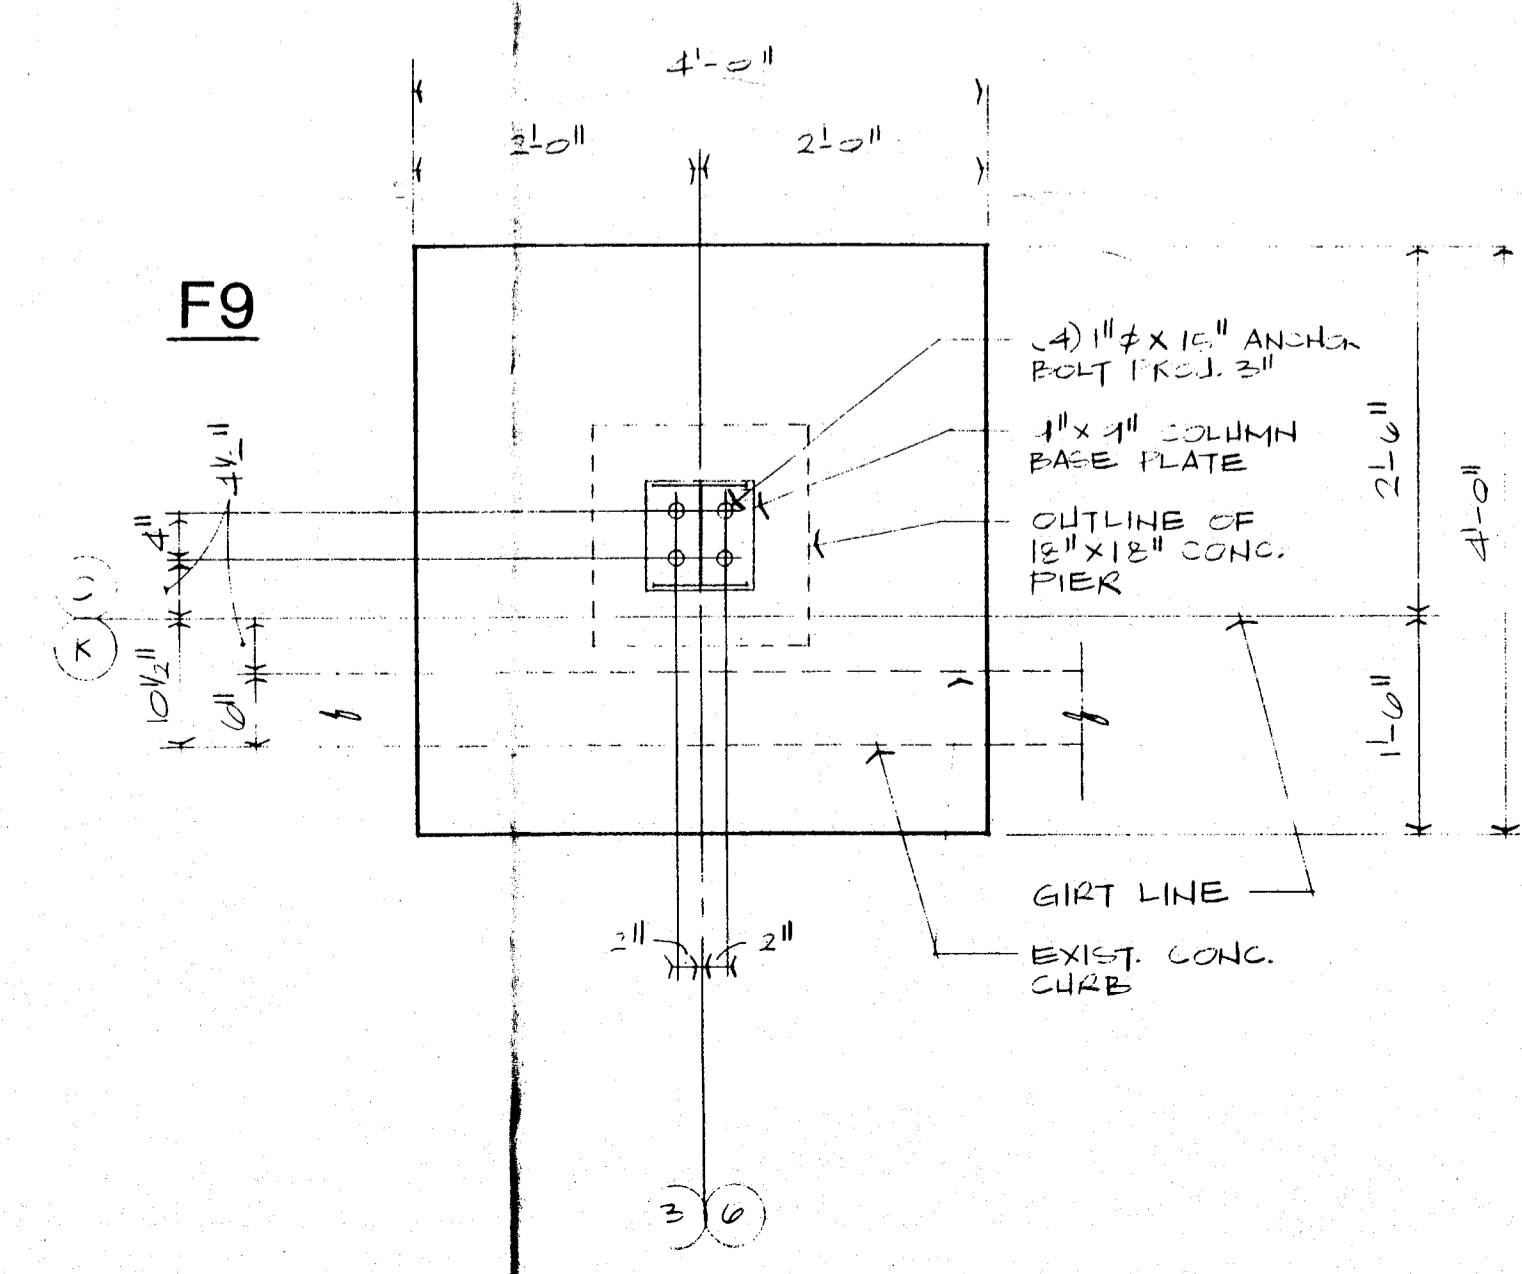 4'-0"
2'-0" 2'-0"
F9
4) 1"⌀ X 15" ANCHOR
BOLT PROJ. 3"
9" X 9" COLUMN
BASE PLATE
OUTLINE OF
18" X 18" CONC.
PIER
2'-6"
4'-0"
1'-6"
4½"
4"
K
10½"
6"
GIRT LINE
EXIST. CONC.
CURB
2" 2"
3 6